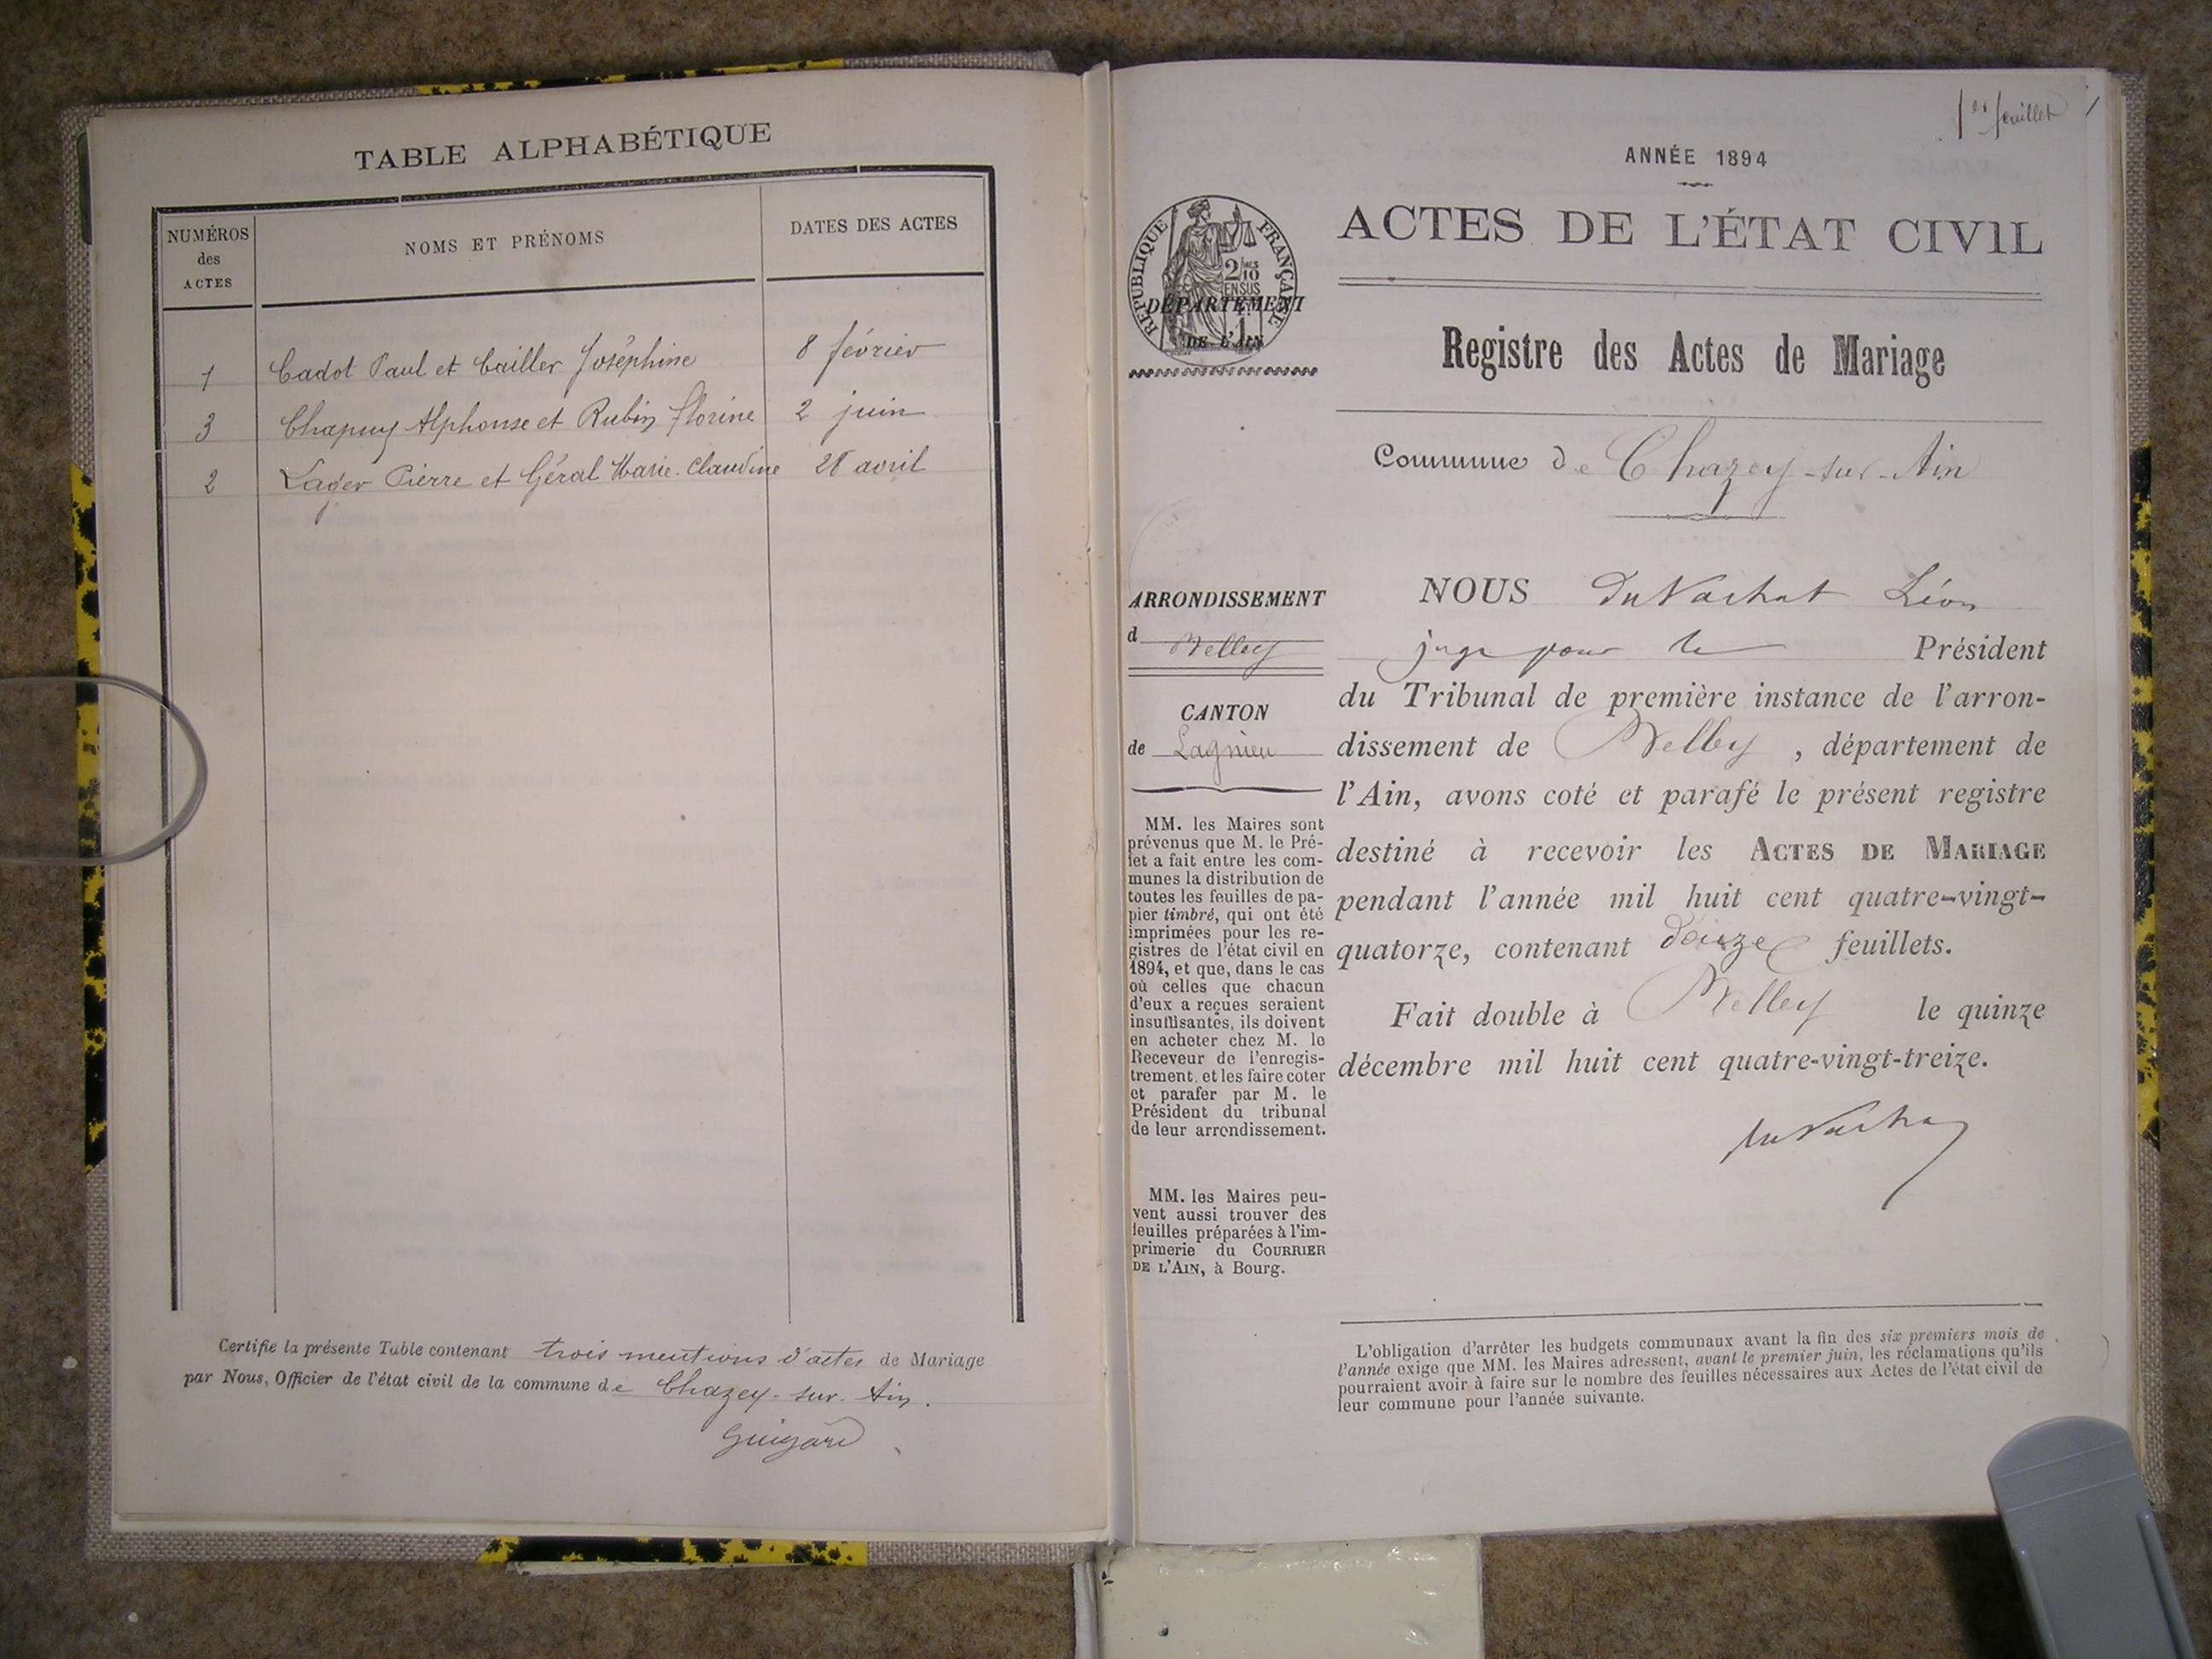 TABLE ALPHABÉTIQUE
NUMÉROS
des
ACTES
NOMS ET PRÉNOMS
DATES DES ACTES
1 Cadot Paul et Cailler Joséphine 8 février
3 Chapuy Alphonse et Rubin Florine 2 juin
2 Lager Pierre et Géral Marie-Claudine 28 avril
Certifie la présente Table contenant trois mentions d'actes de Mariage
par Nous, Officier de l'état civil de la commune de Chazey-sur-Ain.
Guigard
1er feuillet
ANNÉE 1894
RÉPUBLIQUE FRANÇAISE
2/10 EN SUS
DÉPARTEMENT
DE L'AIN
ACTES DE L'ÉTAT CIVIL
Registre des Actes de Mariage
Commune de Chazey-sur-Ain
ARRONDISSEMENT
d Belley
CANTON
de Lagnieu
MM. les Maires sont
prévenus que M. le Pré-
fet a fait entre les com-
munes la distribution de
toutes les feuilles de pa-
pier timbré, qui ont été
imprimées pour les re-
gistres de l'état civil en
1894, et que, dans le cas
où celles que chacun
d'eux a reçues seraient
insuffisantes, ils doivent
en acheter chez M. le
Receveur de l'enregis-
trement, et les faire coter
et parafer par M. le
Président du tribunal
de leur arrondissement.
MM. les Maires peu-
vent aussi trouver des
feuilles préparées à l'im-
primerie du COURRIER
DE L'AIN, à Bourg.
NOUS du Vachat Léon
juge pour le Président
du Tribunal de première instance de l'arron-
dissement de Belley, département de
l'Ain, avons coté et parafé le présent registre
destiné à recevoir les ACTES DE MARIAGE
pendant l'année mil huit cent quatre-vingt-
quatorze, contenant feuillets.
Fait double à Belley le quinze
décembre mil huit cent quatre-vingt-treize.
du Vachat
L'obligation d'arrêter les budgets communaux avant la fin des six premiers mois de
l'année exige que MM. les Maires adressent, avant le premier juin, les réclamations qu'ils
pourraient avoir à faire sur le nombre des feuilles nécessaires aux Actes de l'état civil de
leur commune pour l'année suivante.